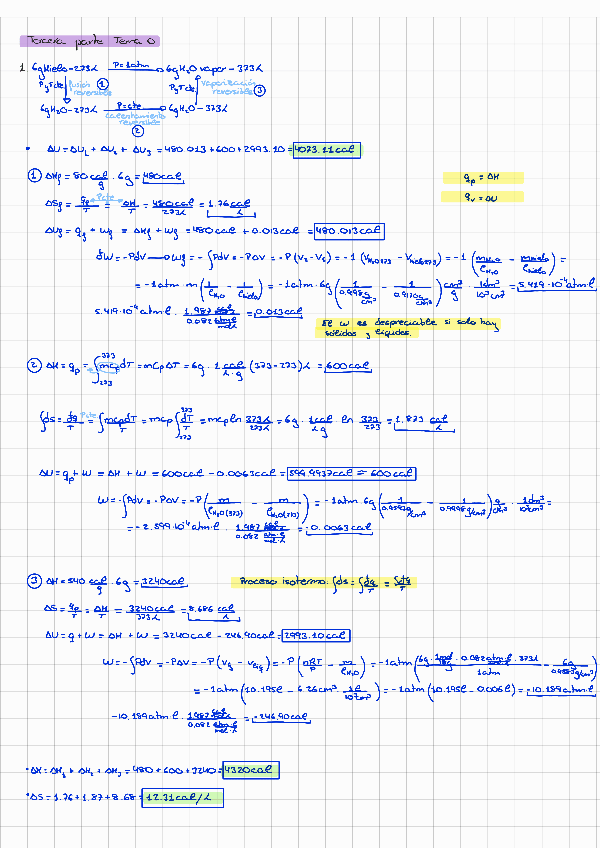 Tercera parte Tema 0
1. 6g Hielo-273K P=1atm 6g H₂O vapor - 373K
P y T cte fusión reversible ① P y T cte vaporización reversible ③
6g H₂O-273K P=cte 6g H₂O-373K
calentamiento reversible
②
• ΔU = ΔU₁ + ΔU₂ + ΔU₃ = 480.013 + 600 + 2993.10 = 4073.11 cal
① ΔHf = 80 cal/g · 6g = 480 cal
qp = ΔH
qv = ΔU
ΔSf = qp/T = Pcte = ΔH/T = 480 cal/273K = 1.76 cal/K
ΔUf = qf + wf = ΔHf + wf = 480 cal + 0.013 cal = 480.013 cal
dW = -PdV → wf = -∫PdV = -PΔV = -P(V₂-V₁) = -1 (VH₂O273 - VHielo273) = -1 (mH₂O/ρH₂O - mhielo/ρhielo) =
= -1atm · m (1/ρH₂O - 1/ρhielo) = -1atm · 6g (1/0.9998 g/cm³ - 1/0.9170 g/cm³) cm³/g · 1dm³/10³cm³ = 5.419·10⁻⁴ atm·l
5.419·10⁻⁴ atm·l · 1.987 cal/0.082 atm·l = 0.013 cal
El w es despreciable si solo hay
sólidos y líquidos.
② ΔH = qp = ∫₂₇₃³⁷³ mCp dT = mCp ΔT = 6g · 1 cal/K·g (373-273)K = 600 cal
∫dS = dq/T = Pcte = ∫mCpdT/T = mCp ∫₂₇₃³⁷³ dT/T = mCp ln 373K/273K = 6g · 1cal/K g ln 373/273 = 1.873 cal/K
ΔU = qp + W = ΔH + W = 600 cal - 0.0063 cal = 599.9937 cal ≈ 600 cal
W = -∫PdV = -PΔV = -P (m/ρH₂O(373) - m/ρH₂O(273)) = -1atm · 6g (1/0.9583 g/cm³ - 1/0.9998 g/cm³) · 1dm³/10³cm³ =
= -2.599·10⁻⁴ atm·l · 1.987 cal/0.082 atm·l = -0.0063 cal
③ ΔH = 540 cal/g · 6g = 3240 cal
Proceso isotermo: ∫dS = ∫dq/T = ∫dq/T
ΔS = qp/T = ΔH/T = 3240 cal/373K = 8.686 cal/K
ΔU = q + W = ΔH + W = 3240 cal - 246.90 cal = 2993.10 cal
W = -∫PdV = -PΔV = -P(Vg - Vliq) = -P (nRT/P - m/ρH₂O) = -1atm (6g · 1mol/18g · 0.082 atm·l · 373K/1atm - 6g/0.9583 g/cm³)
= -1atm (10.195l - 6.26cm³ · 1l/10³cm³) = -1atm (10.195l - 0.006l) = -10.189 atm·l
-10.189 atm·l · 1.987 cal/0.082 atm·l = -246.90 cal
• ΔH = ΔH₁ + ΔH₂ + ΔH₃ = 480 + 600 + 3240 = 4320 cal
• ΔS = 1.76 + 1.87 + 8.68 = 12.31 cal/K